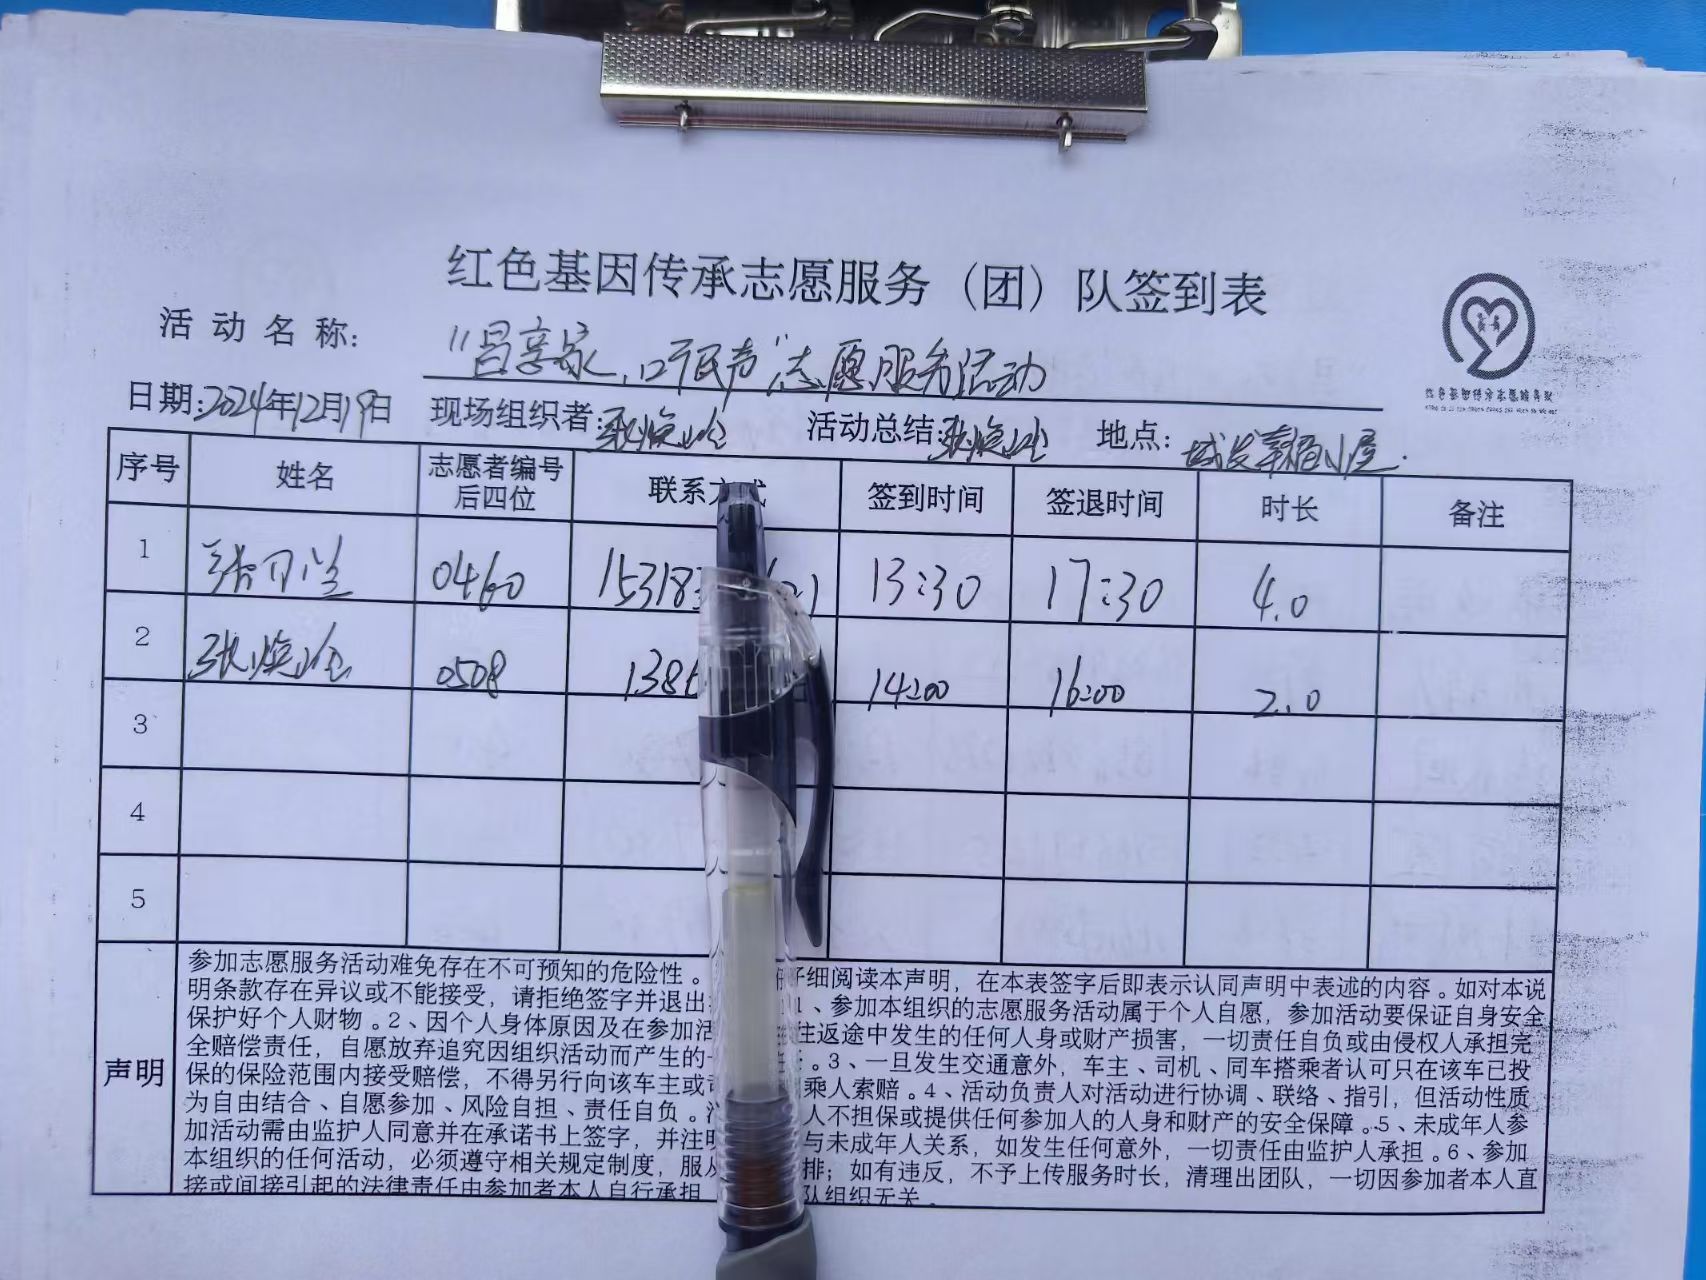 红色基因传承志愿服务（团）队签到表
活动名称: "昌享家,听民声"志愿服务活动
日期:2024年12月19日 现场组织者: 活动总结: 地点:城发幸福小屋.
序号 姓名 志愿者编号后四位 联系方式 签到时间 签退时间 时长 备注
1 0460 15318 13:30 17:30 4.0
2 0508 138 14:00 16:00 2.0
3
4
5
声明
参加志愿服务活动难免存在不可预知的危险性。 仔细阅读本声明，在本表签字后即表示认同声明中表述的内容。如对本说
明条款存在异议或不能接受，请拒绝签字并退出 1、参加本组织的志愿服务活动属于个人自愿，参加活动要保证自身安全
保护好个人财物。2、因个人身体原因及在参加活 往返途中发生的任何人身或财产损害，一切责任自负或由侵权人承担完
全赔偿责任，自愿放弃追究因组织活动而产生的 。3、一旦发生交通意外，车主、司机、同车搭乘者认可只在该车已投
保的保险范围内接受赔偿，不得另行向该车主或 乘人索赔。4、活动负责人对活动进行协调、联络、指引，但活动性质
为自由结合、自愿参加、风险自担、责任自负。 人不担保或提供任何参加人的人身和财产的安全保障。5、未成年人参
加活动需由监护人同意并在承诺书上签字，并注明 与未成年人关系，如发生任何意外，一切责任由监护人承担。6、参加
本组织的任何活动，必须遵守相关规定制度，服从 排；如有违反，不予上传服务时长，清理出团队，一切因参加者本人直
接或间接引起的法律责任由参加者本人自行承担 队组织无关。